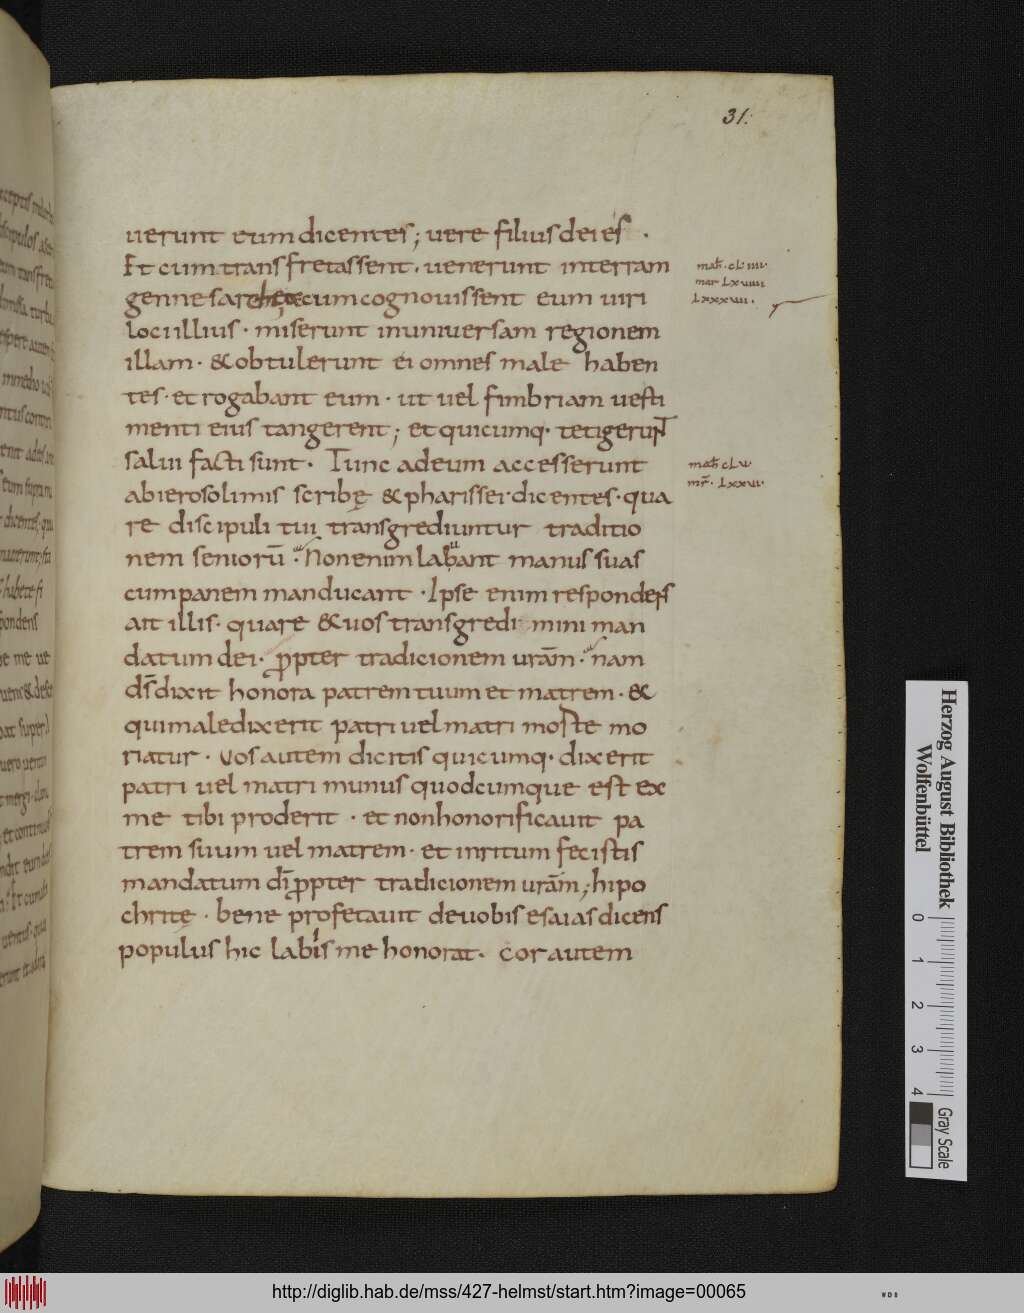 31.
uerunt eum dicentes; uere filius dei es .
Et cum transfretassent. uenerunt in terram
math. cl. iiii.
mar lxuiiii
lxxxuiii.
cum cognouissent eum uiri
loci illius. miserunt in uniuersam regionem
illam. & obtulerunt ei omnes male haben
tes. et rogabant eum. ut uel fimbriam uesti
menti eius tangerent; et quicumq. tetigerunt
salui facti sunt. Tunc ad eum accesserunt
math clu.
mr. lxxui.
ab ierosolimis scribę & pharissei. dicentes. qua
re discipuli tui transgrediuntur traditio
nem senioru̅. Non enim labant manus suas
cum panem manducant. Ipse enim respondens
ait illis. quare & uos transgredimini man
datum dei. propter tradicionem ura̅m. nam
ds̅ dixit honora patrem tuum et matrem. &
qui maledixerit patri uel matri morte mo
riatur. Uos autem dicitis quicumq. dixerit
patri uel matri munus quodcumque est ex
me tibi proderit. et non honorificauit pa
trem suum uel matrem. et inritum fecistis
mandatum di̅ propter tradicionem ura̅m; hipo
chritę. bene profetauit de uobis esaias dicens
populus hic labiis me honorat. cor autem
Herzog August Bibliothek
Wolfenbüttel
0 1 2 3 4
Gray Scale
http://diglib.hab.de/mss/427-helmst/start.htm?image=00065